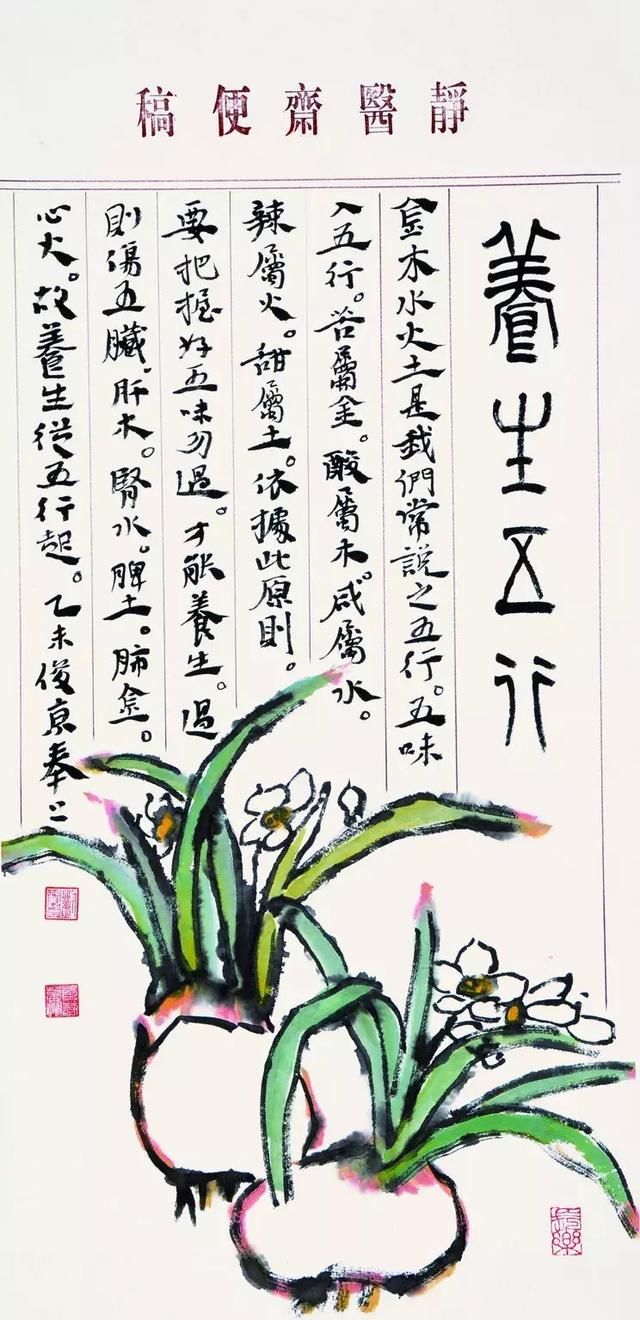 靜醫齋便稿
養生五行
金木水火土是我們常説之五行。五味
入五行。苦屬金。酸屬木。咸屬水。
辣屬火。甜屬土。依據此原則。
要把握好五味勿過。才能養生。過
則傷五臟。肝木。腎水。脾土。肺金。
心火。故養生從五行起。乙未俊京奉上
長樂